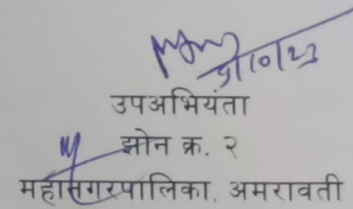 उपअभियंता
झोन क्र. २
महानगरपालिका, अमरावती